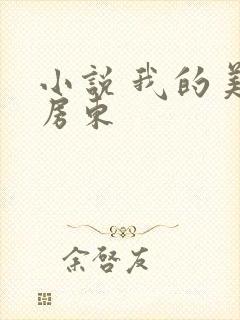 小说我的美
房东
余啓友